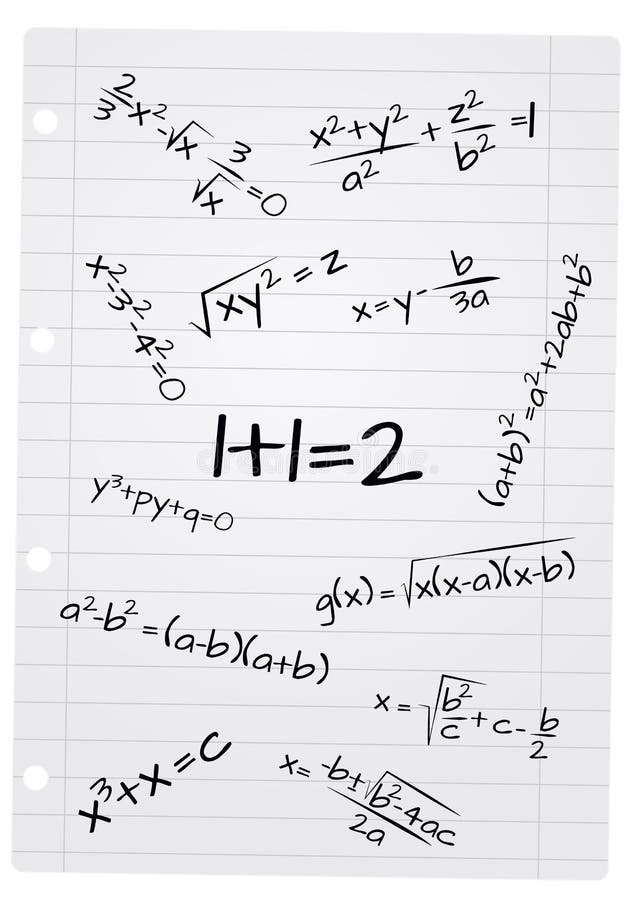 2/3 x² - √x 3/√x = 0
(x² + y²)/a² + z²/b² = 1
x² - 3² - 4² = 0
√xy² = z
x = y - b/3a
(a+b)² = a² + 2ab + b²
1+1=2
y³+py+q=0
g(x) = √x(x-a)(x-b)
a²-b² = (a-b)(a+b)
x = √b²/c + c - b/2
x³xx = c
x = -b±√b²-4ac/2a